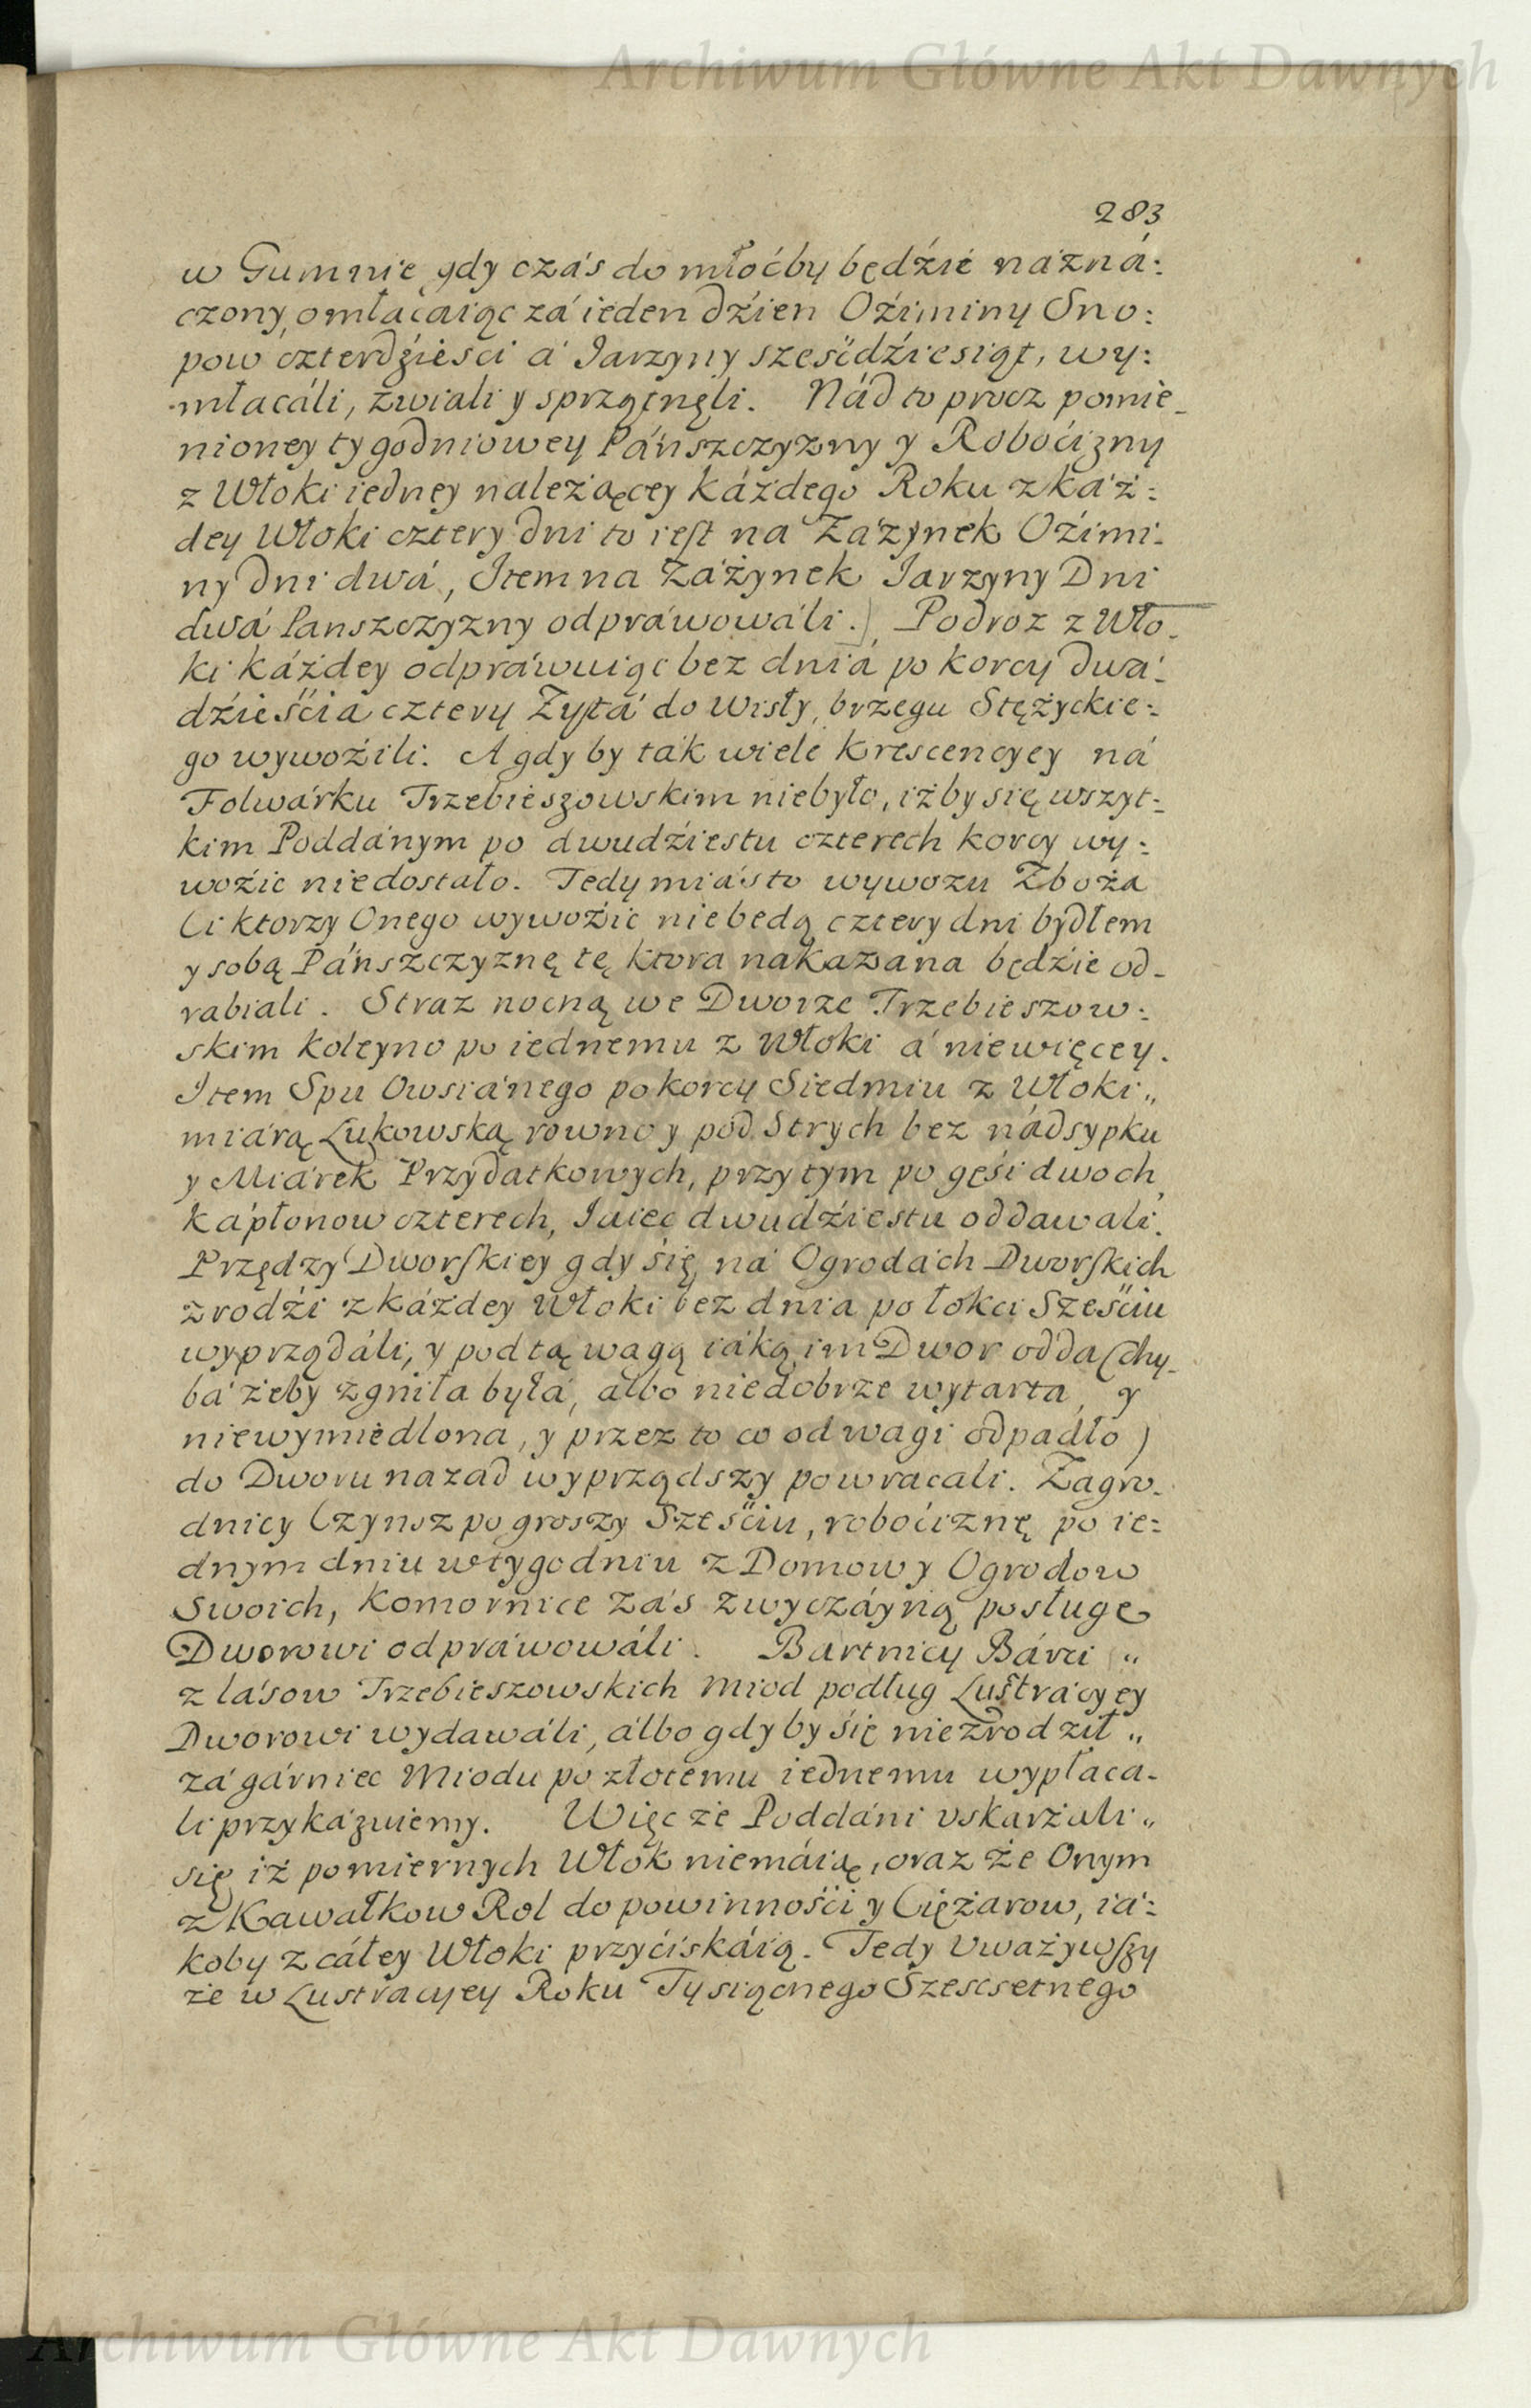 Archiwum Główne Akt Dawnych
283
w Gumnie gdy czás do młoćby będźie náżná:
czony, omłacaiąc zá ieden dźien Oźiminy Sno:
pow czterdźiesci á Iarzyny sześćdźiesiąt, wy:
młacáli, zwiali y sprzątnęli. Nád to procz pomie-
nioney tygodniowey Páńszczyzny y Roboćizny
z Włoki iedney należącey káżdego Roku z káż:
dey Włoki cztery dni to iest na Zażynek Oźimi-
ny dni dwá, Item na Zażynek Iarzyny Dni
dwá Panszczyzny odpráwowáli.) Podroz z Wło-
ki káżdey odpráwuiąc bez dniá po korcy dwá:
dźieśćia cztery Zytá do Wisły, brzegu Stężyckie:
go wywoźili. A gdy by ták wiele krescencyey ná
Folwárku Trzebieszowskim niebyło, iżby się wszyt:
kim Poddánym po dwudźiestu czterech korcy wy:
woźic niedostało. Tedy miásto wywozu Zboża
Ci ktorzy Onego wywoźic niebedą cztery dni bydłem
y sobą Páńszczyznę tę ktora nakazana będźie od-
rabiali. Straz nocną we Dworze Trzebieszow:
skim koleyno po iednemu z Włoki á niewięcey.
Item Spu Owsiánego po korcy Siedmiu z Włoki „
miárą Łukowską rowno y pod Strych bez nádsypku
y Miárek Przydatkowych, przy tym po gęśi dwoch,
kápłonow czterech, Iaiec dwudźiestu oddawali.
Przędzy Dworskiey gdy się ná Ogrodách Dworskich
zrodźi z káżdey Włoki bez dnia po łokci Sześćiu
wyprządáli, y pod tą wagą iáką im Dwor odda (chy-
bá żeby zgniła byłá, albo niedobrze wytarta, y
niewymiedlona, y przez to co od wagi odpadło)
do Dworu nazad wyprządszy powracali. Zagro-
dnicy Czynsz po groszy Sześćiu, robóciznę po ie:
dnym dniu w tygodniu z Domow y Ogrodow
Swoich, Komornice záś zwyczáyną posługę
Dworowi odpráwowáli. Bartnicy Bárci „
z lásow Trzebieszowskich Miod podług Lustrácyey
Dworowi wydawáli, álbo gdy by się niezrodził „
zá gárniec Miodu po złotemu iednemu wypłaca-
li przykázuiemy. Więc że Poddáni vskarżali „
się iż pomiernych Włok niemáią, oraz że Onym
z Kawałkow Rol do powinnośći y Ciężarow, iá:
koby z cáłey Włoki przyćiskáią. Tedy Vważywszy
że w Lustracyey Roku Tysiącnego Szescsetnego
Archiwum Główne Akt Dawnych